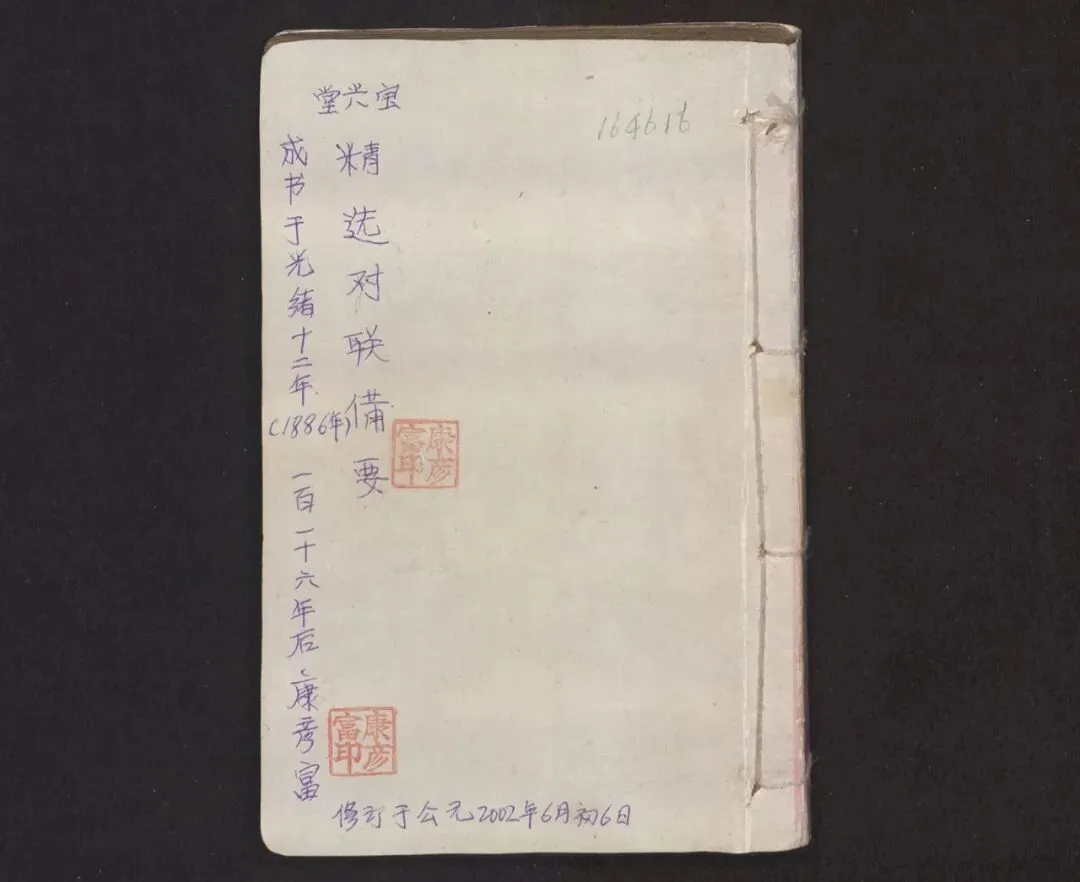 宝兴堂
精选对联備要
成书于光绪十二年
(1886年)
一百一十六年后康彦富
修订于公元2002年6月初6日
164616
康彦富印
康彦富印